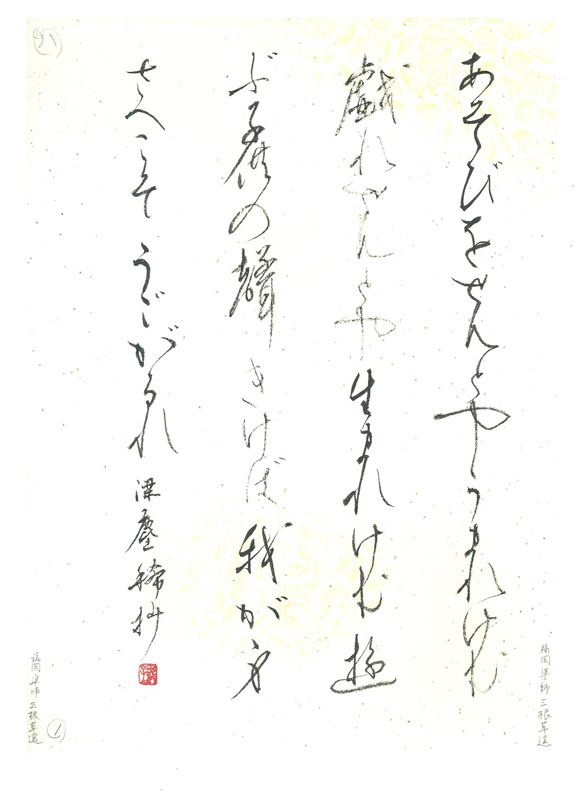 あそびをせんとやうまれけむ
戯れせんとや生まれけむ遊
ぶ子供の聲きけば我が身
さへこそうごがるれ 梁塵秘抄
福岡 三根草遥
福岡 三根草遥
21
1